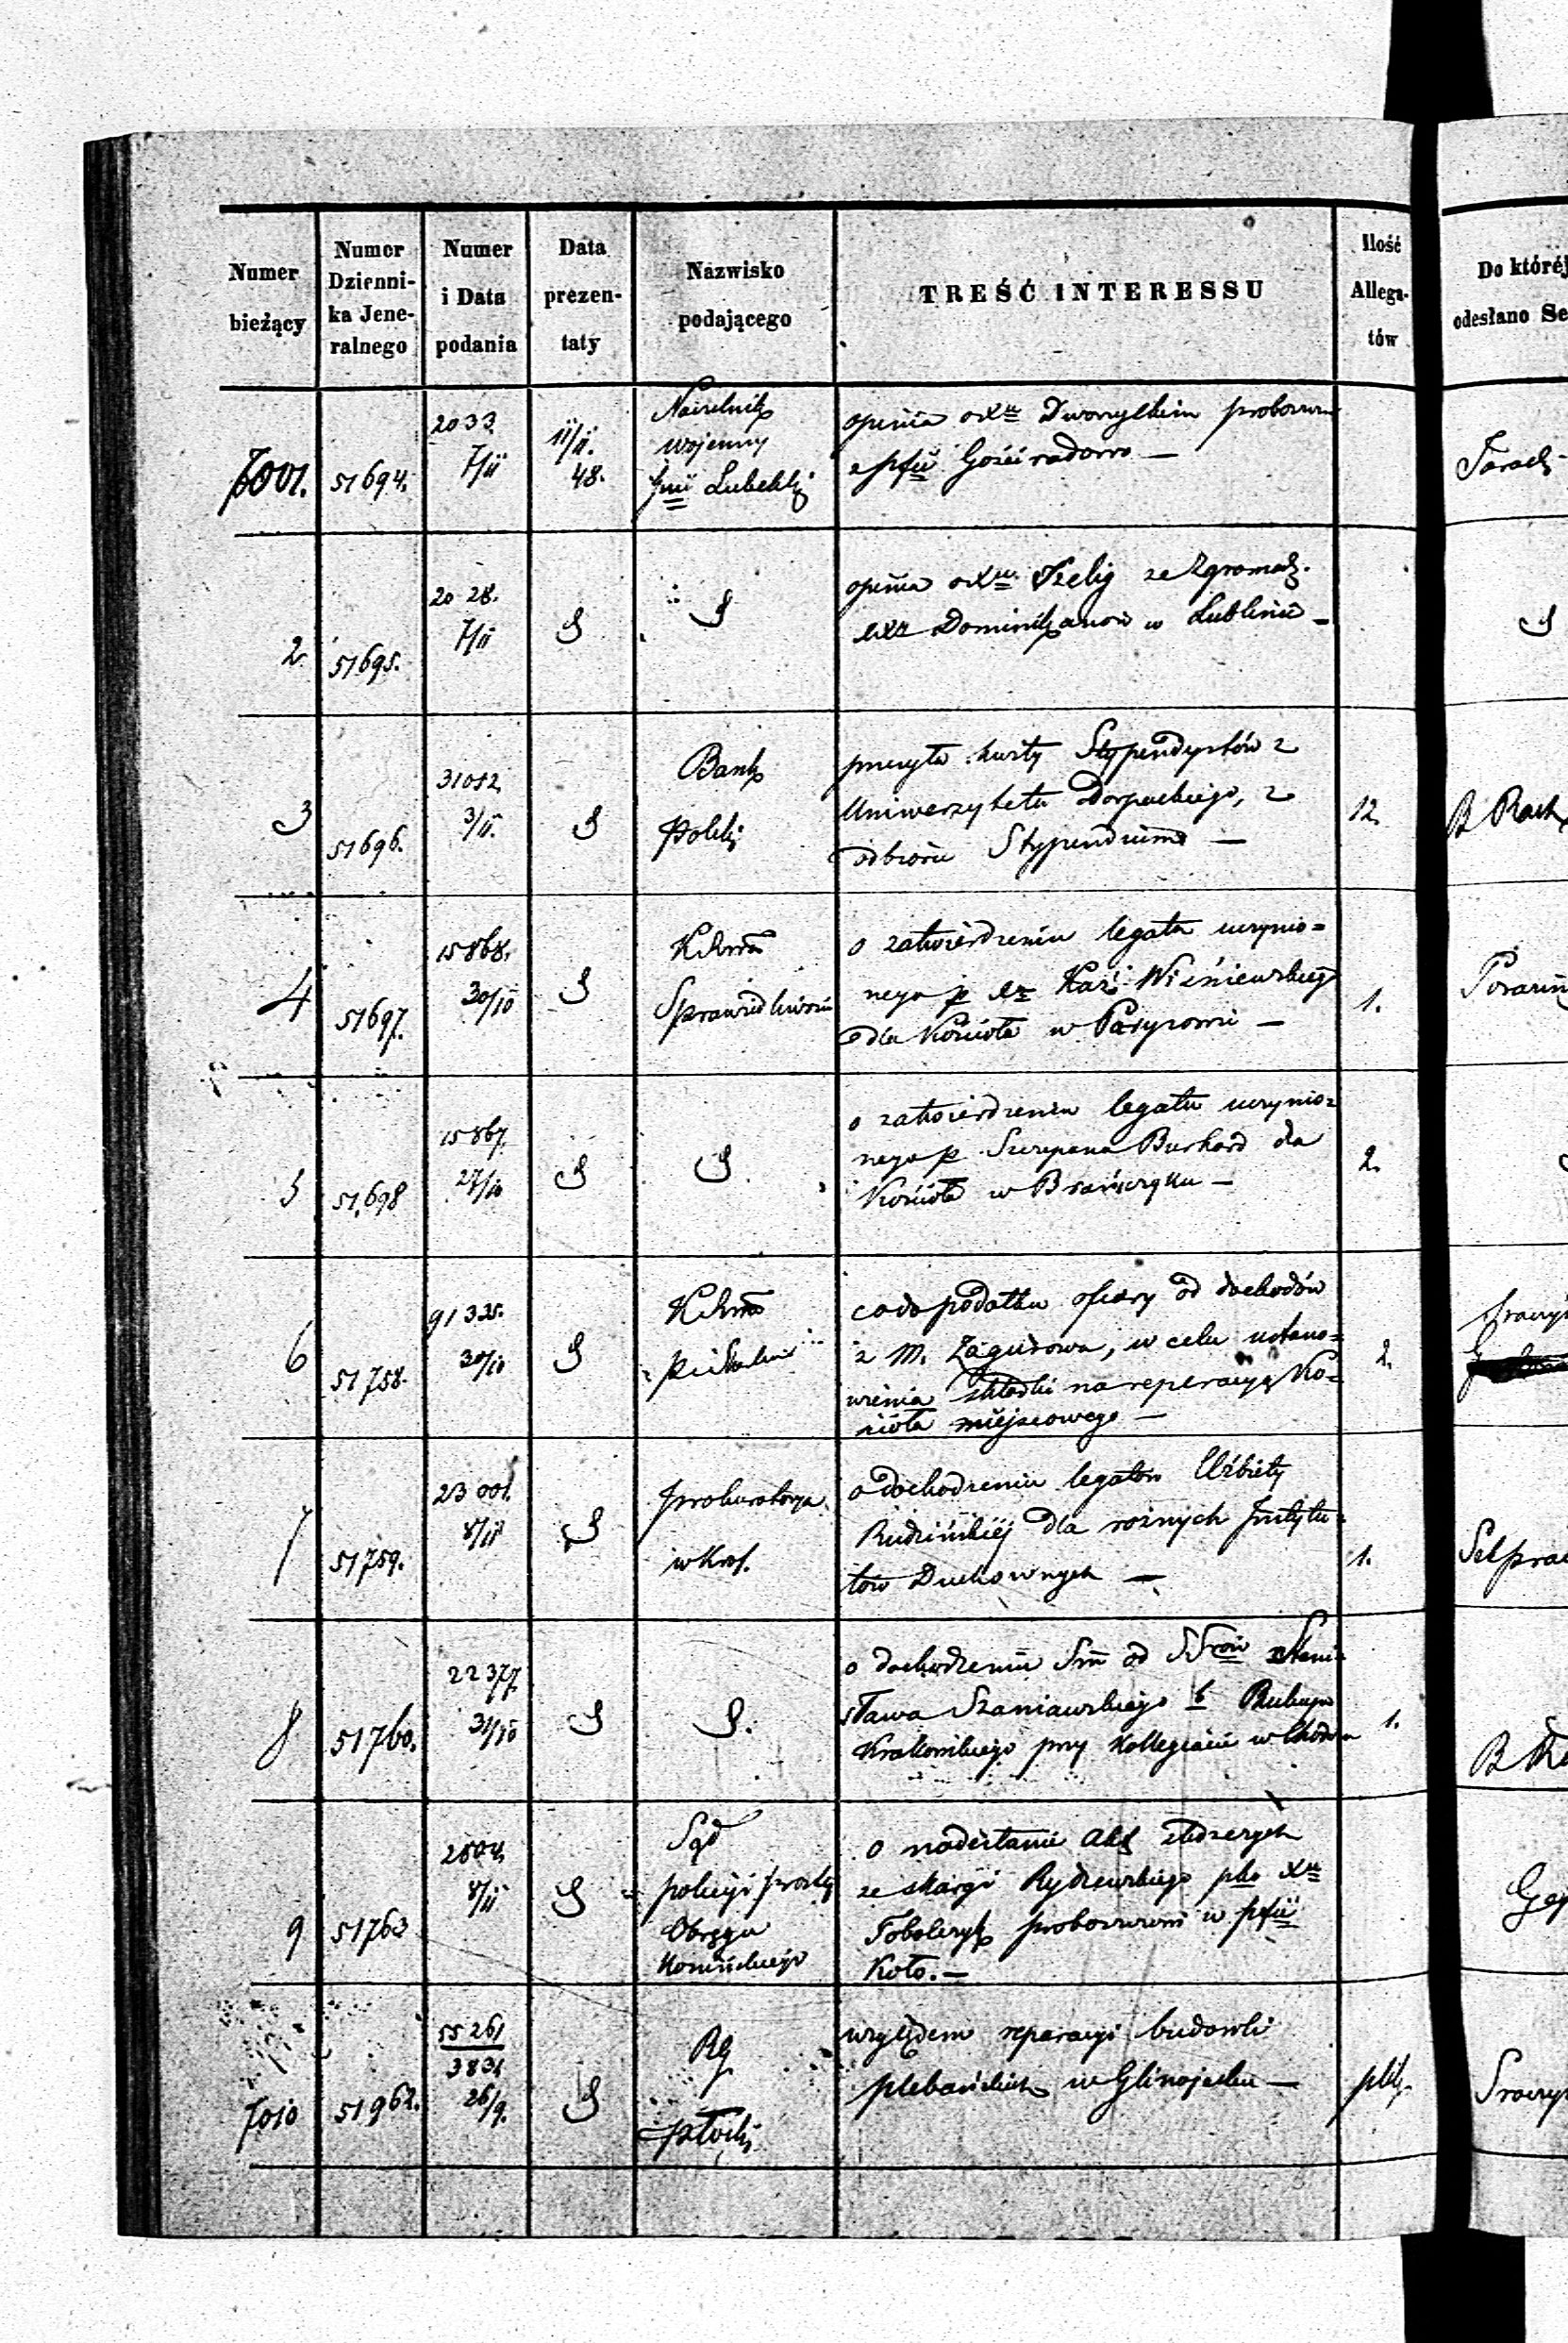 Numer bieżący
Numer Dzienni-
ka Jene-
ralnego
Numer i Data podania
Data prezen-
taty
Nazwisko podającego
TREŚĆ INTERESSU
Ilość Allega-
tów
Do któréj
odesłano Se
7001.
51694.
2033
7/11
11/11.
48.
Naczelnik
wojenny
Lubelski
opinia o Xu Dworzyckim
z pfii Gościeradowo —
2
51695.
2028.
7/11
opinia o Xu Szelig ze Zgromadz.
XX Dominikanów w Lublinie —
3
51696.
31052
3/11.
Bank
Polski
przesyła kwity Stypendystów z
Uniwerzytetu Dorpackiego, z
odbioru Stypendium —
12.
B Rach
4
51697.
15868.
30/10
Sprawiedliwości
o zatwierdzeniu legatu uczynio=
nego p Xz Kaź: Wiśniewskiego
dla Kościoła w Parysowie —
1.
5
51,698
15867.
27/10
o zatwierdzeniu legatu uczynio=
nego p. Szczepana Burhard dla
Kościoła w Brańszczyku —
2.
6
51758.
91335.
30/10
co do podatku ofiary od dochodów
z M. Zagurowa, w celu ustano=
wienia składki na reperacyą Ko=
ścioła miejscowego —
2.
7
51759.
23001.
8/11
Prokuratorya
w Król.
o dochodzeniu legatów Elżbiety
Rudzińskiej dla rożnych Instytu=
tów Duchownych —
1.
8
51760.
22377.
31/10
o dochodzeniu Sm od SSrów Stani=
sława Szaniawskiego b Biskupa
Krakowskiego przy Kollegiacie w
1.
9
51763
2504.
8/11
Sąd
policyi prostej
Obręgu
Konińskiego
o nadesłanie Akt śledczych
ze skargi Rydzewskiego pko Xu
Tobolczyk proboszczowi w pfii
Koło. —
7010
51962.
55261
3831
26/9.
RG
Płocki
względem reparacyi budowli
plebańskich w Glinojecku —